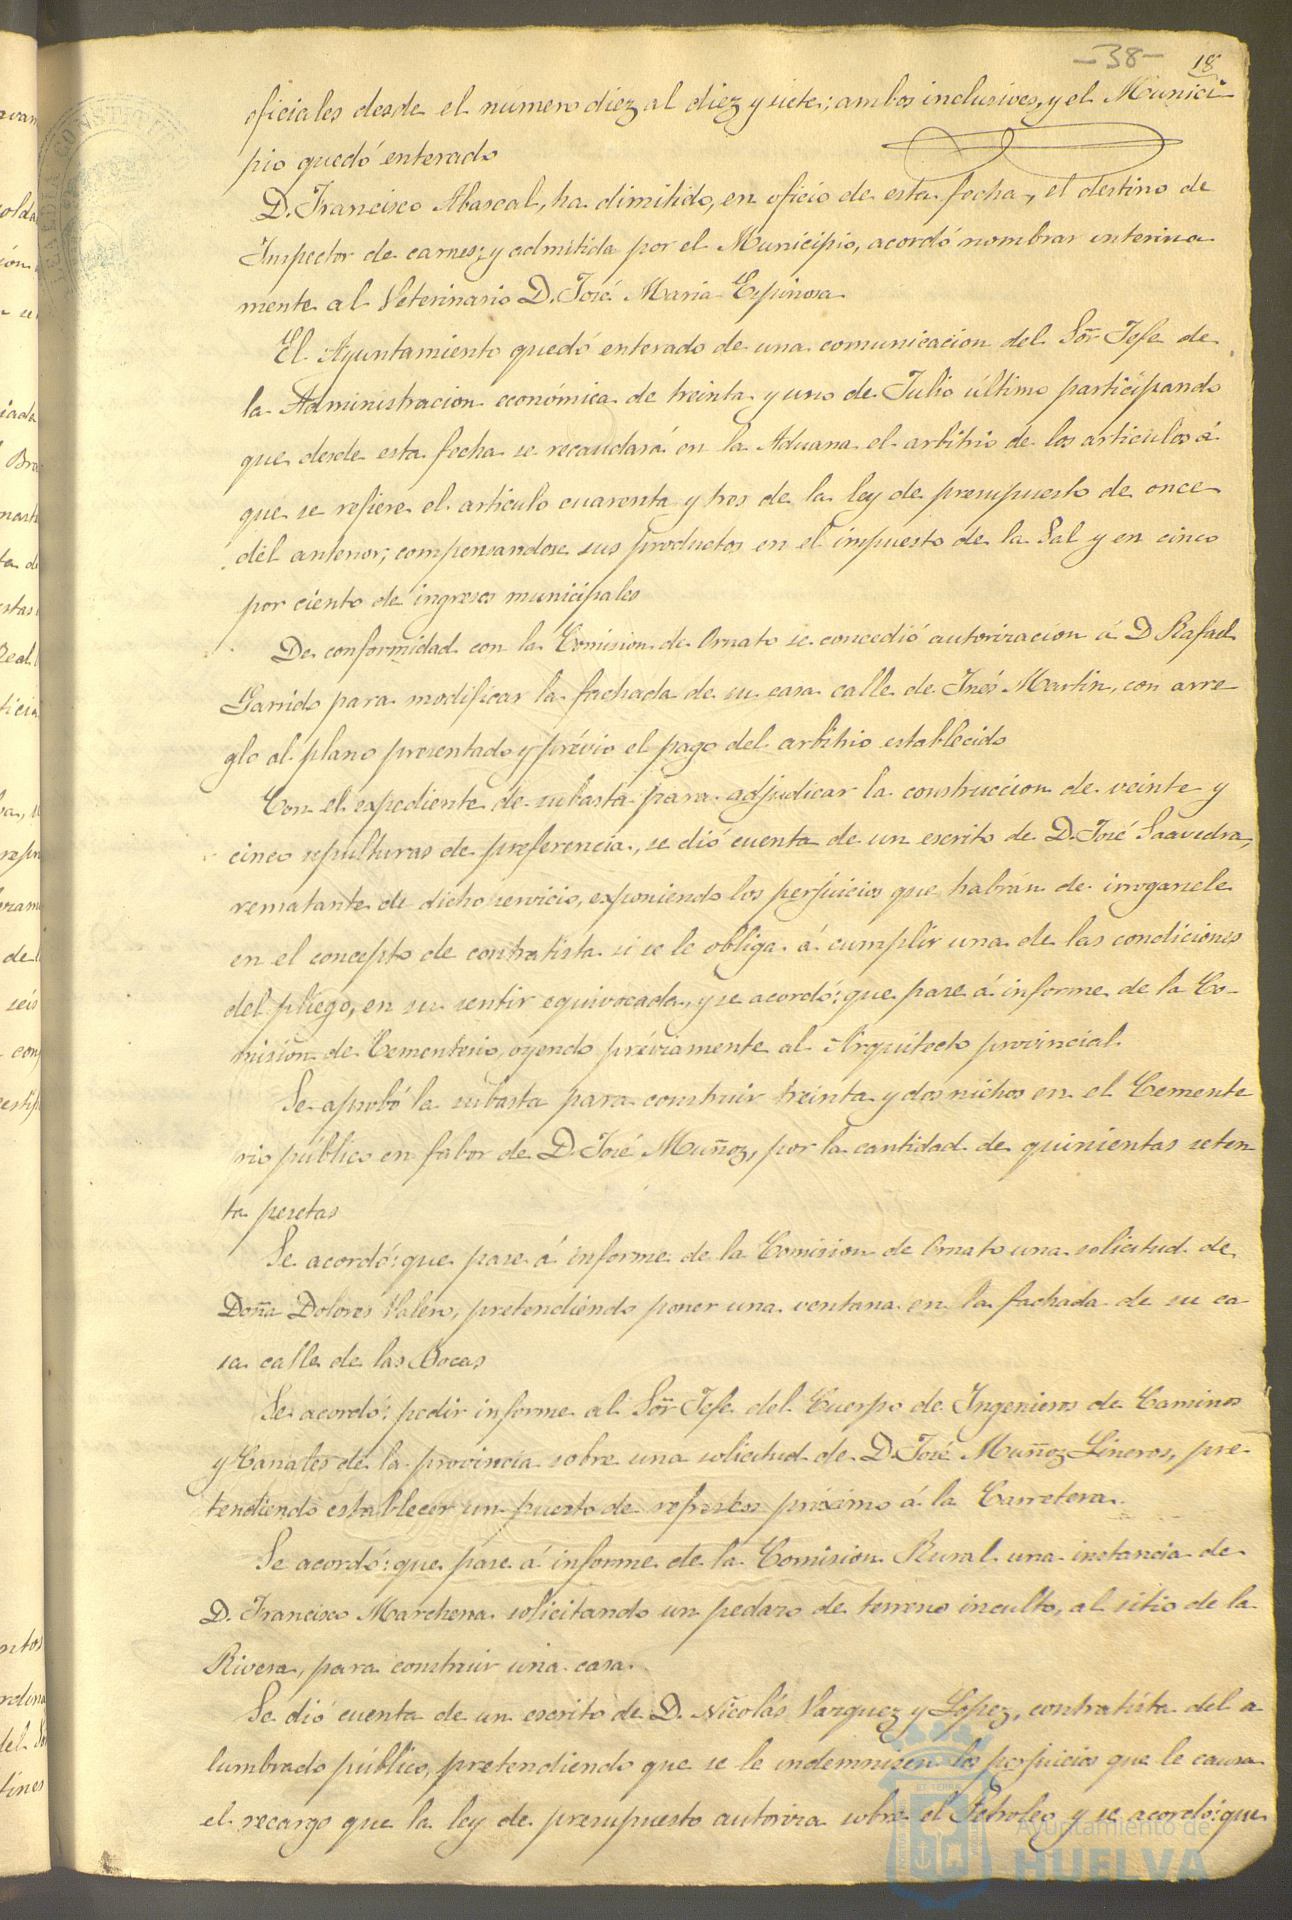 -38- 18
oficiales desde el numero diez al diez y siete; ambos inclusives, y el Munici
pio quedó enterado
D. Francisco Abascal, ha dimitido, en oficio de esta fecha, el destino de
Inspector de carnes; y admitida por el Municipio, acordó nombrar interina
mente al Veterinario D. José Maria Espinosa
El Ayuntamiento quedó enterado de una comunicacion del Sor̃ Jefe de
la Administracion económica de treinta y uno de Julio último participando
que desde esta fecha se recaudará en la Aduana el arbitrio de los articulos á
que se refiere el articulo cuarenta y tres de la ley de presupuesto de once
del anterior; compensandose sus productos en el impuesto de la Sal y en cinco
por ciento de ingresos municipales
De conformidad con la Comision de Ornato se concedió autorizacion á D Rafael
Garrido para modificar la fachada de su casa calle de Inés Martin, con arre
glo al plano presentado y prévio el pago del arbitrio establecido
Con el expediente de subasta para adjudicar la construccion de veinte y
cinco sepulturas de preferencia, se dió cuenta de un escrito de D. José Saavedra,
rematante de dicho servicio, exponiendo los perjuicios que habrán de irrogarsele
en el concepto de contratista si se le obliga á cumplir una de las condiciones
del pliego, en su sentir equivocada, y se acordó: que pase á informe de la Co-
mision de Cementerio, oyendo préviamente al Arquitecto provincial.
Se aprobó la subasta para construir treinta y dos nichos en el Cemente
rio público en fabor de D. José Muñoz, por la cantidad de quinientas seten
ta pesetas
Se acordó: que pase á informe de la Comision de Ornato una solicitud de
Doña Dolores Valero, pretendiendo poner una ventana en la fachada de su ca
sa calle de las Bocas
Se acordó: pedir informe al Sor̃ Jefe del Cuerpo de Ingenieros de Caminos
y Canales de la provincia sobre una solicitud de D. José Muñoz Lineros, pre-
tendiendo establecer un puesto de refrescos próximo á la Carretera.
Se acordó: que pase á informe de la Comision Rural una instancia de
D. Francisco Marchena solicitando un pedazo de terreno inculto, al sitio de la
Rivera, para construir una casa.
Se dió cuenta de un escrito de D. Nicolás Vazquez y Lopez, contratista del a
lumbrado público, pretendiendo que se le indemnisen los perjuicios que le causa
el recargo que la ley de presupuesto autoriza sobre el Petroleo y se acordó: que
Ayuntamiento de
HUELVA